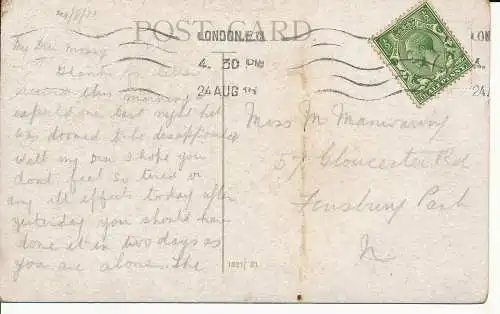 24/8/
POST CARD
LONDON. E.C.
4. 30 PM
24 AUG
HALFPENNY
24
My Dear
Thanks for letter
received this morning I
expected one last night but
was doomed to be disappointed
Well my dear I hope you
dont feel so tired or
any ill effects today after
yesterday you should have
done it in two days as
you are alone. The
Miss M Manwaring
57 Gloucester Rd
Finsbury Park
N
1921/21